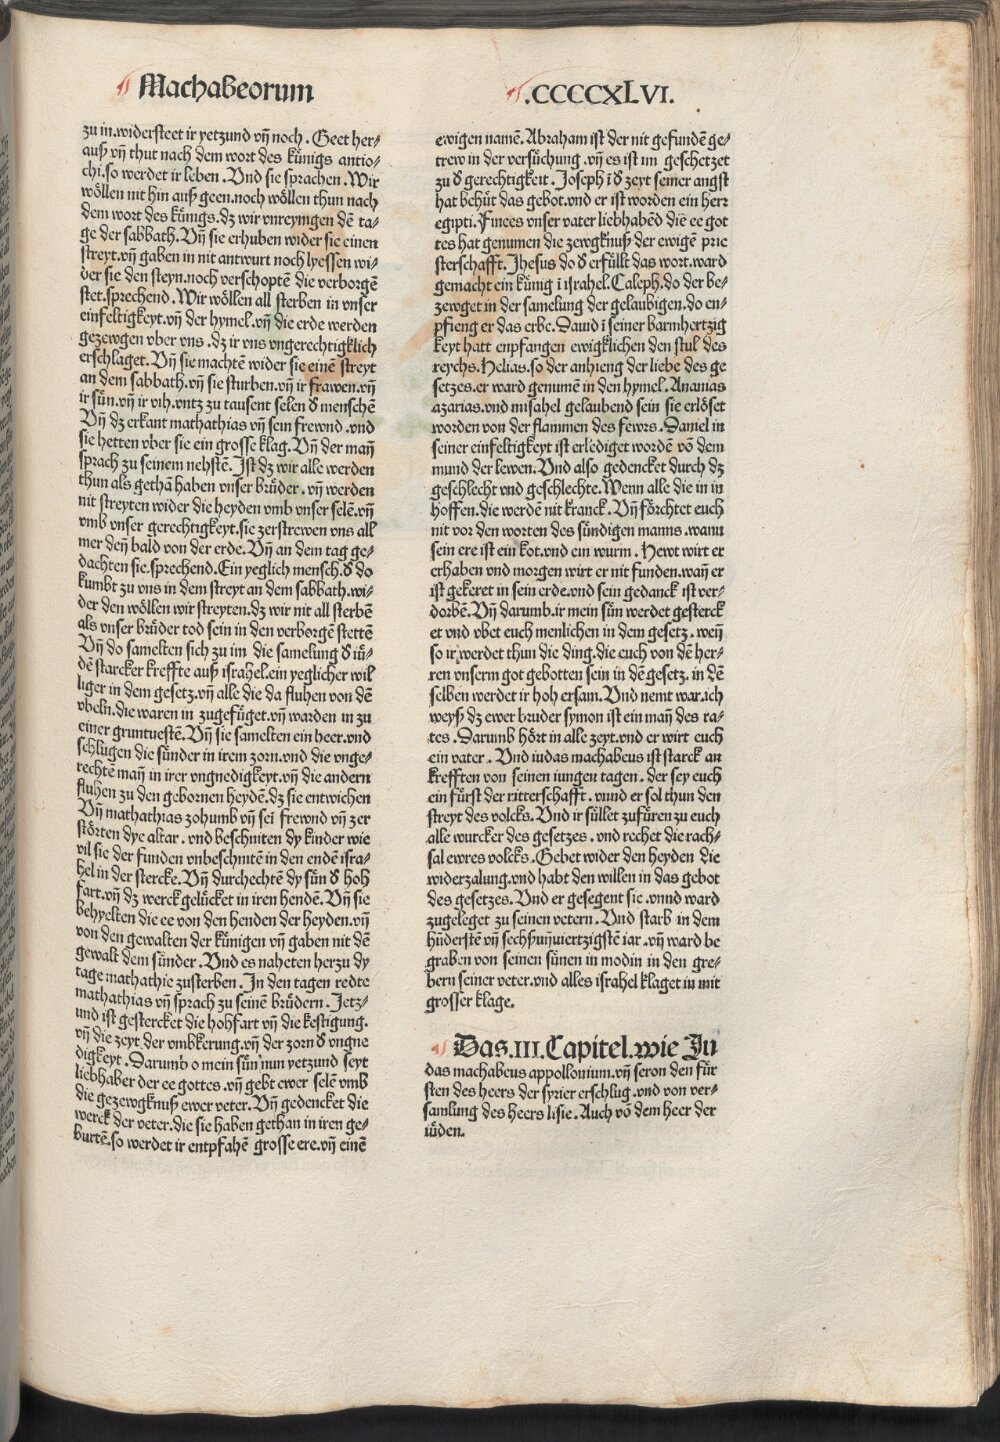 Machabeorum
.CCCCXLVI.
zu in.widersteet ir yetzund vñ noch. Geet her⸗
auß vñ thut nach dem wort des künigs antio⸗
chi.so werdet ir leben. Vnd sie sprachen. Wir
wöllen nit hin auß geen.noch wöllen thun nach
dem wort des künigs.dz wir vnreynigen dē ta⸗
ge der sabbath. Vñ sie erhuben wider sie einen
streyt.vñ gaben in nit antwurt noch lyessen wi⸗
der sie den steyn.noch verschoptē die verborgē
stet.sprechend. Wir wöllen all sterben in vnser
einfeltigkeyt.vñ der hymel.vñ die erde werden
gezewgen vber vns.dz ir vns vngerechtigklich
erschlaget. Vñ sie machtē wider sie einē streyt
an dem sabbath.vñ sie sturben.vñ ir frawen.vñ
ir sün.vñ ir vih.vntz zu tausent selen ď menschē
Vñ dz erkant mathathias vñ sein frewnd.vnd
sie hetten vber sie ein grosse klag. Vñ der mañ
sprach zu seinem nehstē. Ist dz wir alle werden
thun als gethā haben vnser brüder.vñ werden
nit streyten wider die heyden vmb vnser selē.vñ
vmb vnser gerechtigkeyt.sie zerstrewen vns all
mer deñ bald von der erde. Vñ an dem tag ge⸗
dachten sie.sprechend. Ein yeglich mensch.ď do
kumbt zu vns in dem streyt an dem sabbath.wi⸗
der den wöllen wir streyten.dz wir nit all sterbē
als vnser brüder tod sein in den verborgē stettē
Vñ do samelten sich zu im die samelung ď iü⸗
dē starcker kreffte auß israhel.ein yeglicher wil
liger in dem gesetz.vñ alle die da fluhen von dē
vbeln.die waren in zugefüget.vñ warden in zu
einer gruntuestē. Vñ sie samelten ein heer.vnd
schlugen die sünder in irem zorn.vnd die vnge⸗
rechtē mañ in irer vngnedigkeyt.vñ die andern
fluhen zu den gebornen heydē.dz sie entwichen
Vñ mathathias zohumb vñ sei frewnd vñ zer
störten dye altar.vnd beschniten dy kinder wie
vil sie der funden vnbeschnitē in den endē isra⸗
hel in der stercke. Vñ durchechtē dy sün ď hoh
fart.vñ dz werck gelücket in iren hendē. Vñ sie
behyelten die ee von den henden der heyden.vñ
von den gewalten der künigen vñ gaben nit dē
gewalt dem sünder. Vnd es naheten herzu dy
tage mathathie zusterben. In den tagen redte
mathathias vñ sprach zu seinē brüdern. Jetz⸗
und ist gestercket die hohfart vñ die kestigung.
vñ die zeyt der vmbkerung.vñ der zorn ď vngne
digkeyt. Darumb o mein sün nun yetzund seyt
liebhaber der ee gottes.vñ gebt ewer selē vmb
die gezewgknuß ewer veter. Vñ gedencket die
werck der veter.die sie haben gethan in iren ge⸗
burtē.so werdet ir entpfahē grosse ere.vñ einē
ewigen namē. Abraham ist der nit gefundē ge⸗
trew in der versüchung.vñ es ist im geschetzet
zu ď gerechtigkeit. Joseph ī ď zeyt seiner angst
hat behüt das gebot.vnd er ist worden ein herr
egipti. Finees vnser vater liebhabēd die ee got
tes hat genumen die zewgknuß der ewigē prie
sterschafft. Jhesus do ď erfüllt das wort.ward
gemacht ein künig ī israhel. Caleph.do der be⸗
zewget in der samelung der gelaubigen.do en⸗
pfieng er das erbe. Dauid ī seiner barmhertzig
keyt hatt enpfangen ewigklichen den stul des
reychs. Helias.so der anhieng der liebe des ge
setzes.er ward genumē in den hymel. Ananias
azarias.vnd misahel gelaubend sein sie erlöset
worden von der flammen des fewrs. Daniel in
seiner einfeltigkeyt ist erlediget wordē vō dem
mund der lewen. Vnd also gedencket durch dz
geschlecht vnd geschlechte. Wenn alle die in in
hoffen.die werdē nit kranck. Vñ förchtet euch
nit vor den worten des sündigen manns.wann
sein ere ist ein kot.vnd ein wurm. Hewt wirt er
erhaben vnd morgen wirt er nit funden.wañ er
ist gekeret in sein erde.vnd sein gedanck ist ver⸗
dorbē. Vñ darumb.ir mein sün werdet gesterck
et vnd vbet euch menlichen in dem gesetz.weñ
so ir werdet thun die ding.die euch von dē her⸗
ren vnserm got gebotten sein in dē gesetz.in dē
selben werdet ir hoh ersam. Vnd nemt war.ich
weyß dz ewer bruder symon ist ein mañ des ra⸗
tes. Darumb hört in alle zeyt.vnd er wirt euch
ein vater. Vnd iudas machabeus ist starck an
krefften von seinen iungen tagen.der sey euch
ein fürst der ritterschafft.vnnd er sol thun den
streyt des volcks. Vnd ir süllet zufüren zu euch
alle wurcker des gesetzes.vnd rechet die rach⸗
sal ewres volcks. Gebet wider den heyden die
widerzalung.vnd habt den willen in das gebot
des gesetzes. Vnd er gesegent sie.vnnd ward
zugeleget zu seinen vetern. Vnd starb in dem
hūderstē vñ sechßvñviertzigstē iar.vñ ward be
graben von seinen sünen in modin in den gre⸗
bern seiner veter.vnd alles israhel klaget in mit
grosser klage.
Das.III.Capitel.wie Ju
das machabeus appollonium.vñ seron den für
sten des heers der syrier erschlug.vnd von ver⸗
samlung des heers lisie. Auch vō dem heer der
iüden.